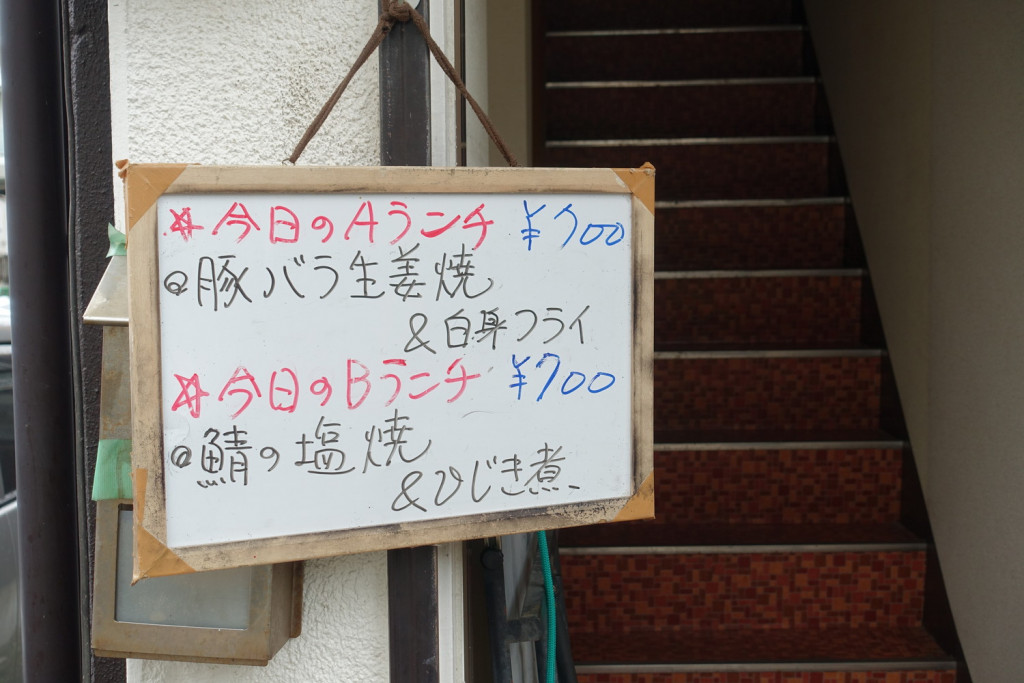 ☆今日のAランチ ¥700
◎豚バラ生姜焼
&白身フライ
☆今日のBランチ ¥700
◎鯖の塩焼
&ひじき煮